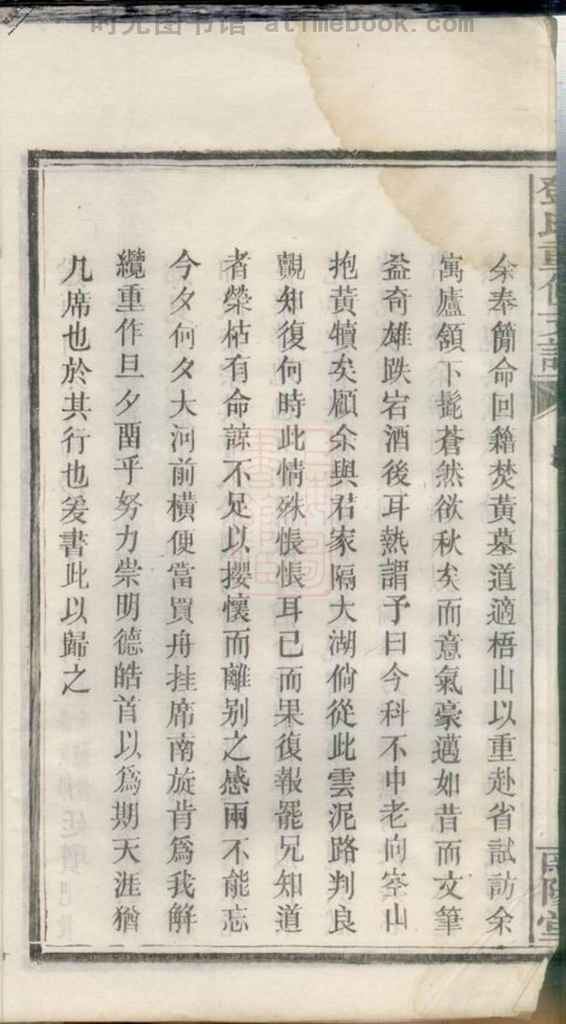 时光图书馆 atimebook.com
余奉簡命回籍焚黃墓道適梧山以重赴省試訪余
寓廬頷下髭蒼然欲秋矣而意氣豪邁如昔而文筆
益奇雄跌宕酒後耳熱謂予曰今科不中老向空山
抱黃犢矣顧余與君家隔大湖倘從此雲泥路判良
覿知復何時此情殊悵悵耳已而果復報罷兄知道
者榮枯有命諒不足以攖懷而離别之感兩不能忘
今夕何夕大河前橫便當買舟挂席南旋肯爲我解
纜重作旦夕畱乎努力崇明德皓首以爲期天涯猶
几席也於其行也爰書此以歸之